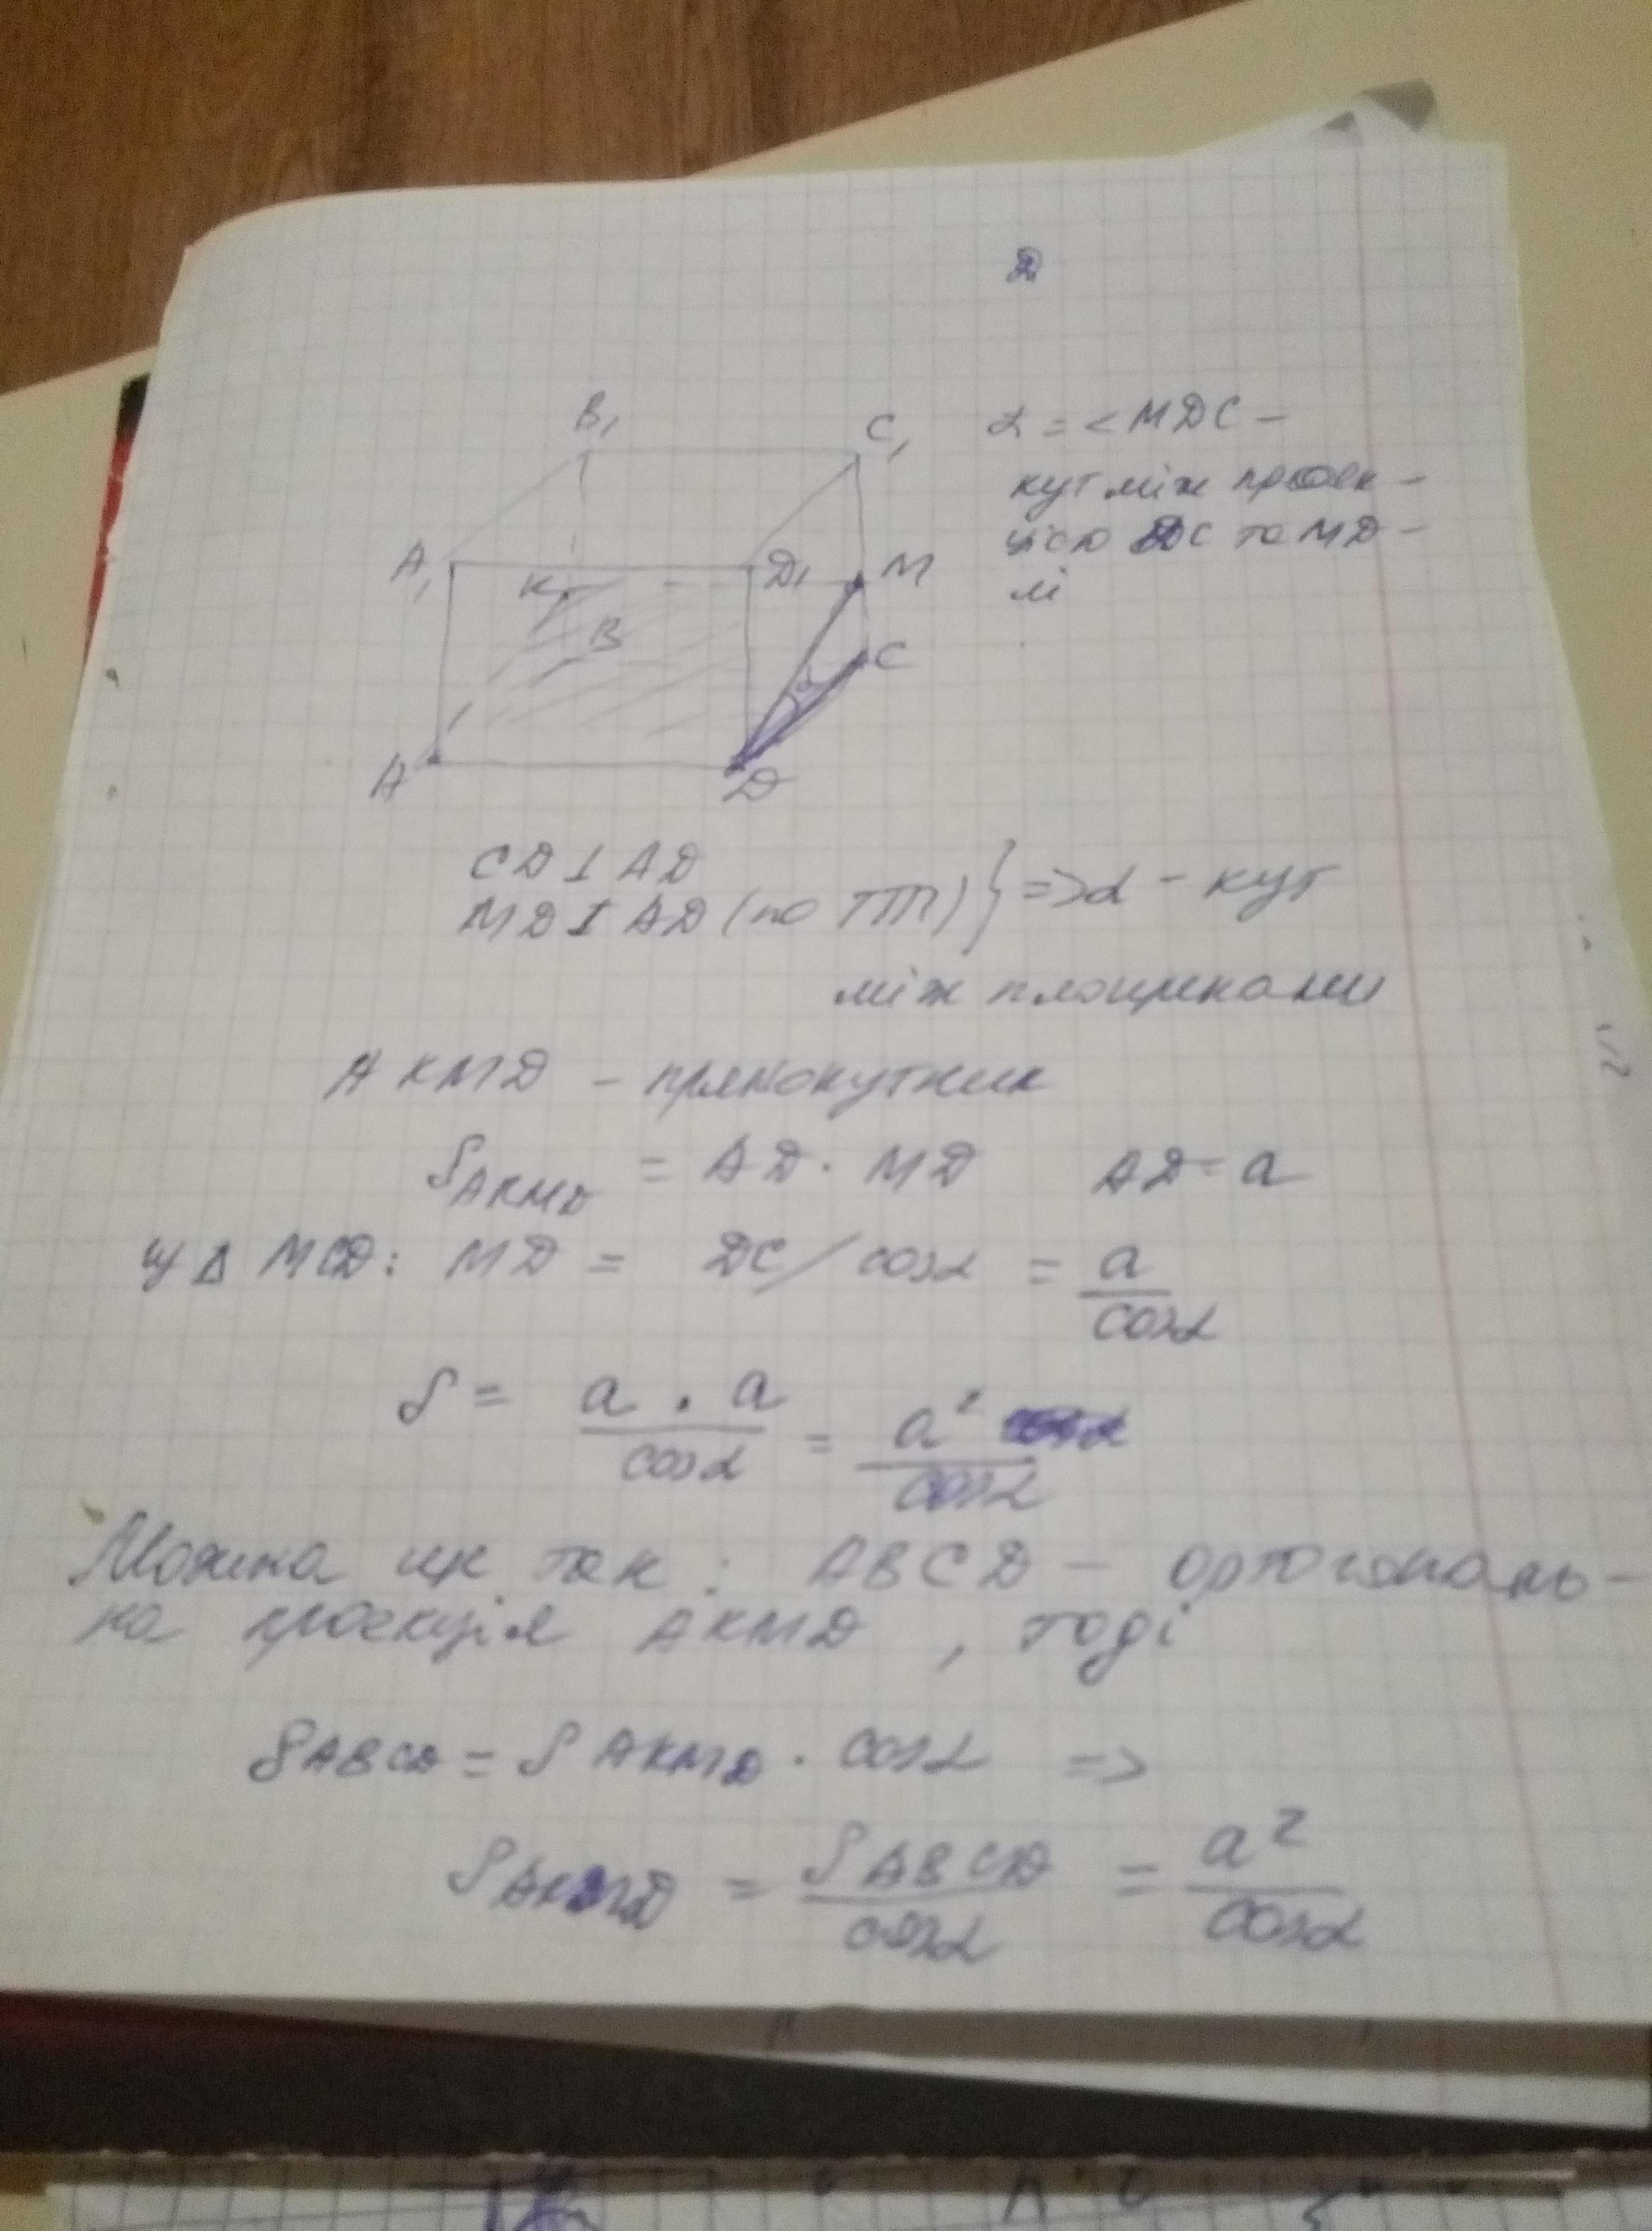 2
B₁ C₁
A₁ K D₁ M
B C
α
A D
α = < MDC –
кут між проек –
цією DC та MD –
лі
CD ⊥ AD
MD ⊥ AD (по ТТП) } => α – кут
між площинами
AKMD – прямокутник
S AKMD = AD · MD AD = a
у Δ MCD: MD = DC / cosα = a / cosα
S = a · a / cosα = a² / cosα
Можна ще так: ABCD – ортогональ –
на проекція AKMD, тоді
S ABCD = S AKMD · cosα =>
S AKMD = S ABCD / cosα = a² / cosα